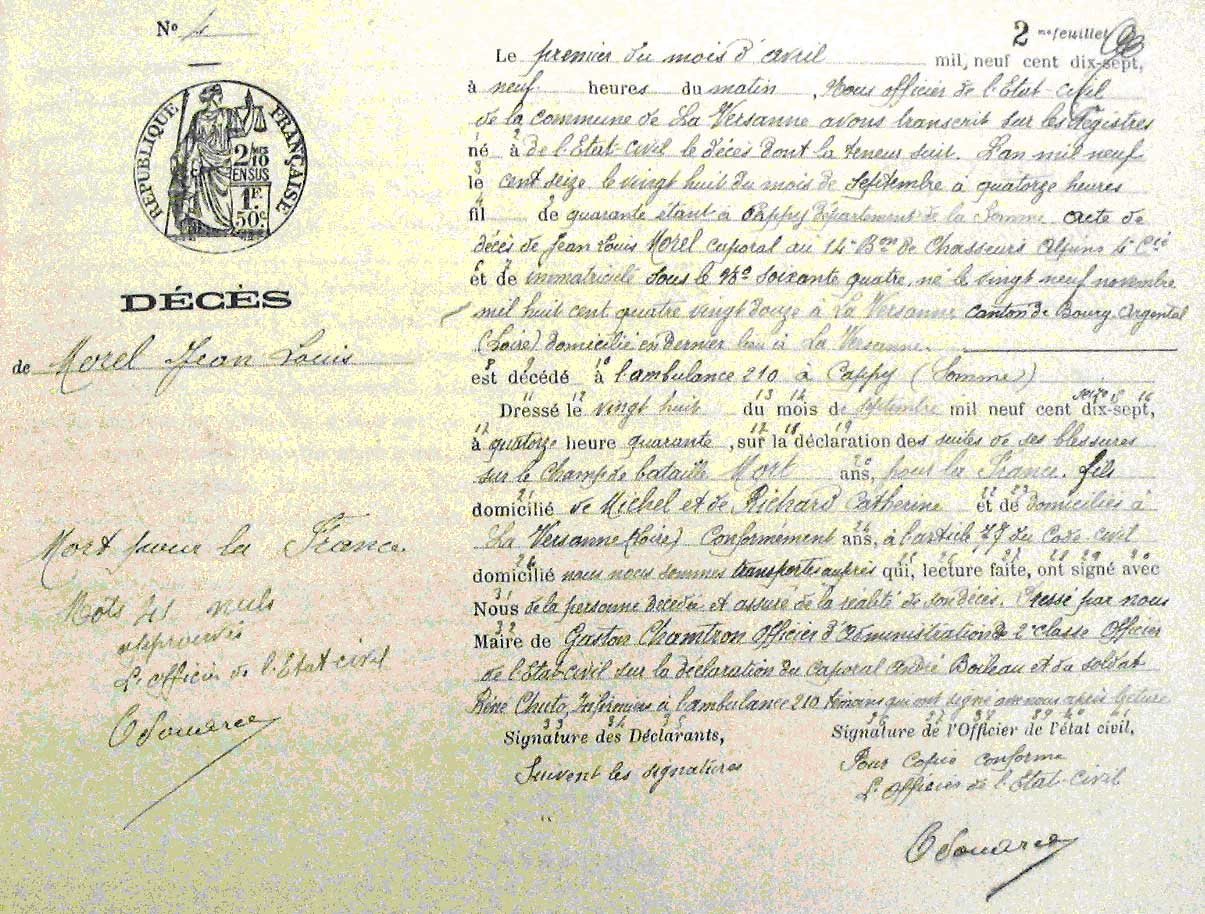 N° 4
RÉPUBLIQUE FRANÇAISE
2/10
EN SUS
1F
50c
DÉCÈS
de Morel Jean Louis
Mort pour la France.
Mots 41 nuls
approuvés
L'officier de l'Etat civil
2 me feuillet
Le premier du mois d'avril mil neuf cent dix-sept,
à neuf heures du matin, Nous officier de l'Etat-civil
de la commune de La Versanne avons transcrit sur les Registres
né à de l'Etat-Civil le décès dont la teneur suit. L'an mil neuf
le cent seize le vingt huit du mois de Septembre à quatorze heures
fil de quarante étant à Cappy Département de la Somme acte de
décès de Jean Louis Morel caporal au 14e Bon de Chasseurs Alpins 4e Cie
et de immatriculé sous le No soixante quatre, né le vingt neuf novembre
mil huit cent quatre vingt douze à La Versanne canton de Bourg Argental
(Loire) domicilié en dernier lieu à La Versanne.
est décédé à l'ambulance 210 à Cappy (Somme)
Dressé le vingt huit du mois de septembre mil neuf cent dix-sept,
à quatorze heure quarante, sur la déclaration des suites de ses blessures
sur le champ de bataille Mort ans, pour la France. fils
domicilié de Michel et de Richard Catherine et de domiciliés à
La Versanne (Loire) Conformément ans, à l'article 77 du Code civil
domicilié nous nous sommes transportés auprès qui, lecture faite, ont signé avec
Nous de la personne décédée et assuré de la réalité de son décès. Dressé par nous
Maire de Gaston Chamtron Officier d'Administration de 2e classe Officier
de l'Etat-civil sur la déclaration du caporal André Boileau et du soldat
Réne Chuto, Infirmiers à l'ambulance 210 témoins qui ont signé avec nous après lecture
Signature des Déclarants, Signature de l'Officier de l'état civil,
Suivent les signatures
Pour copie conforme
L'officier de l'Etat-Civil